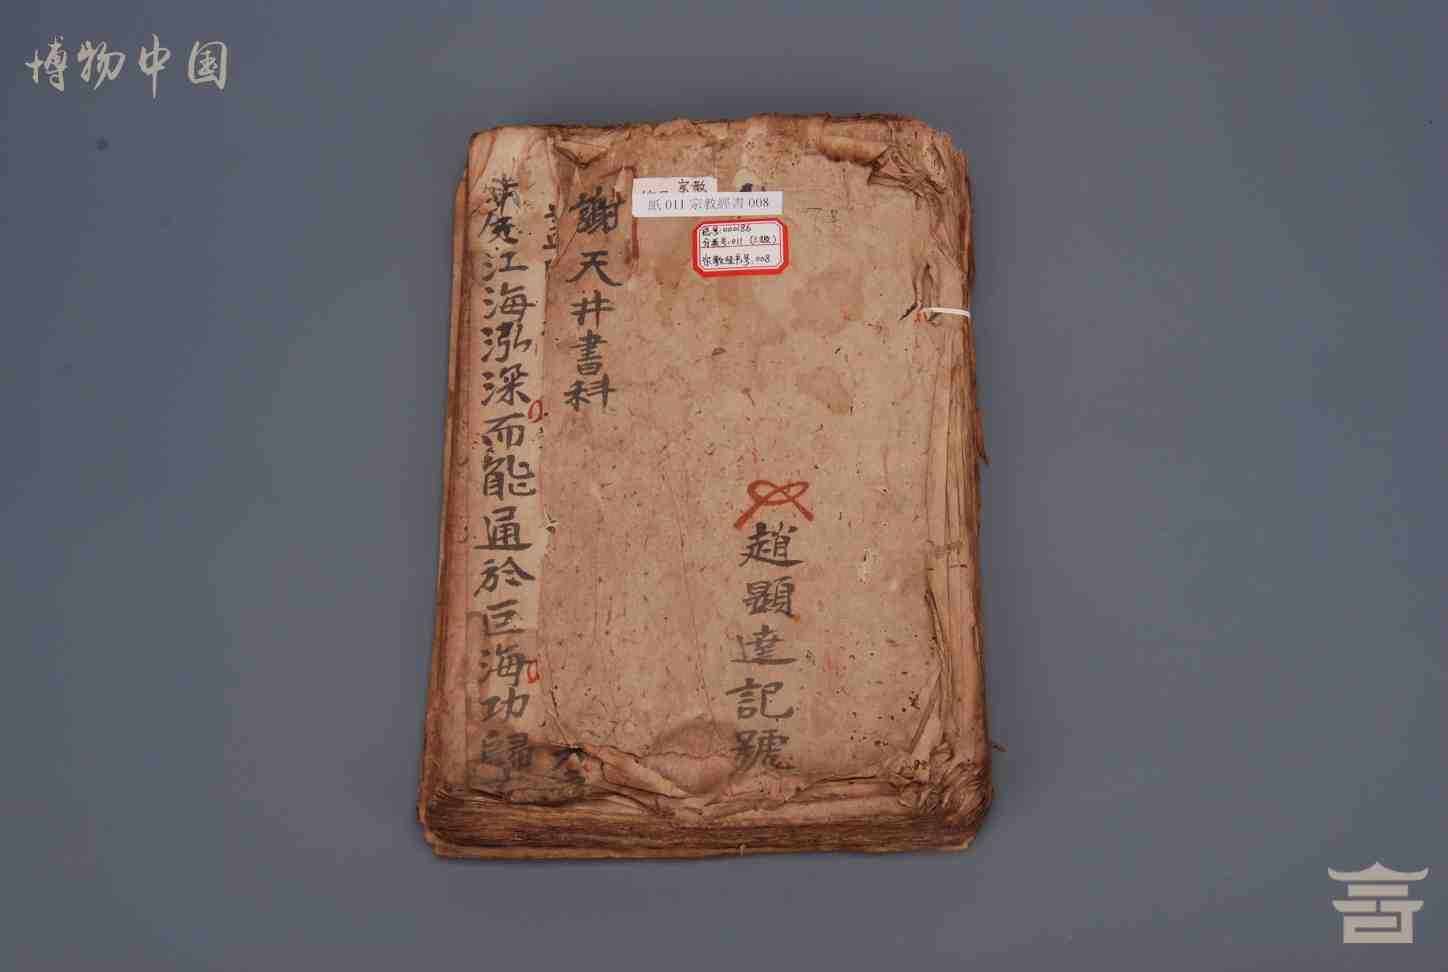 博物中国
宗教
紙 011 宗教經書 008
总号:000186
分类号:011 (三级)
宗教经书号:008
趙顯達記號
謝天井書科
江海泓深而能通於巨海功歸